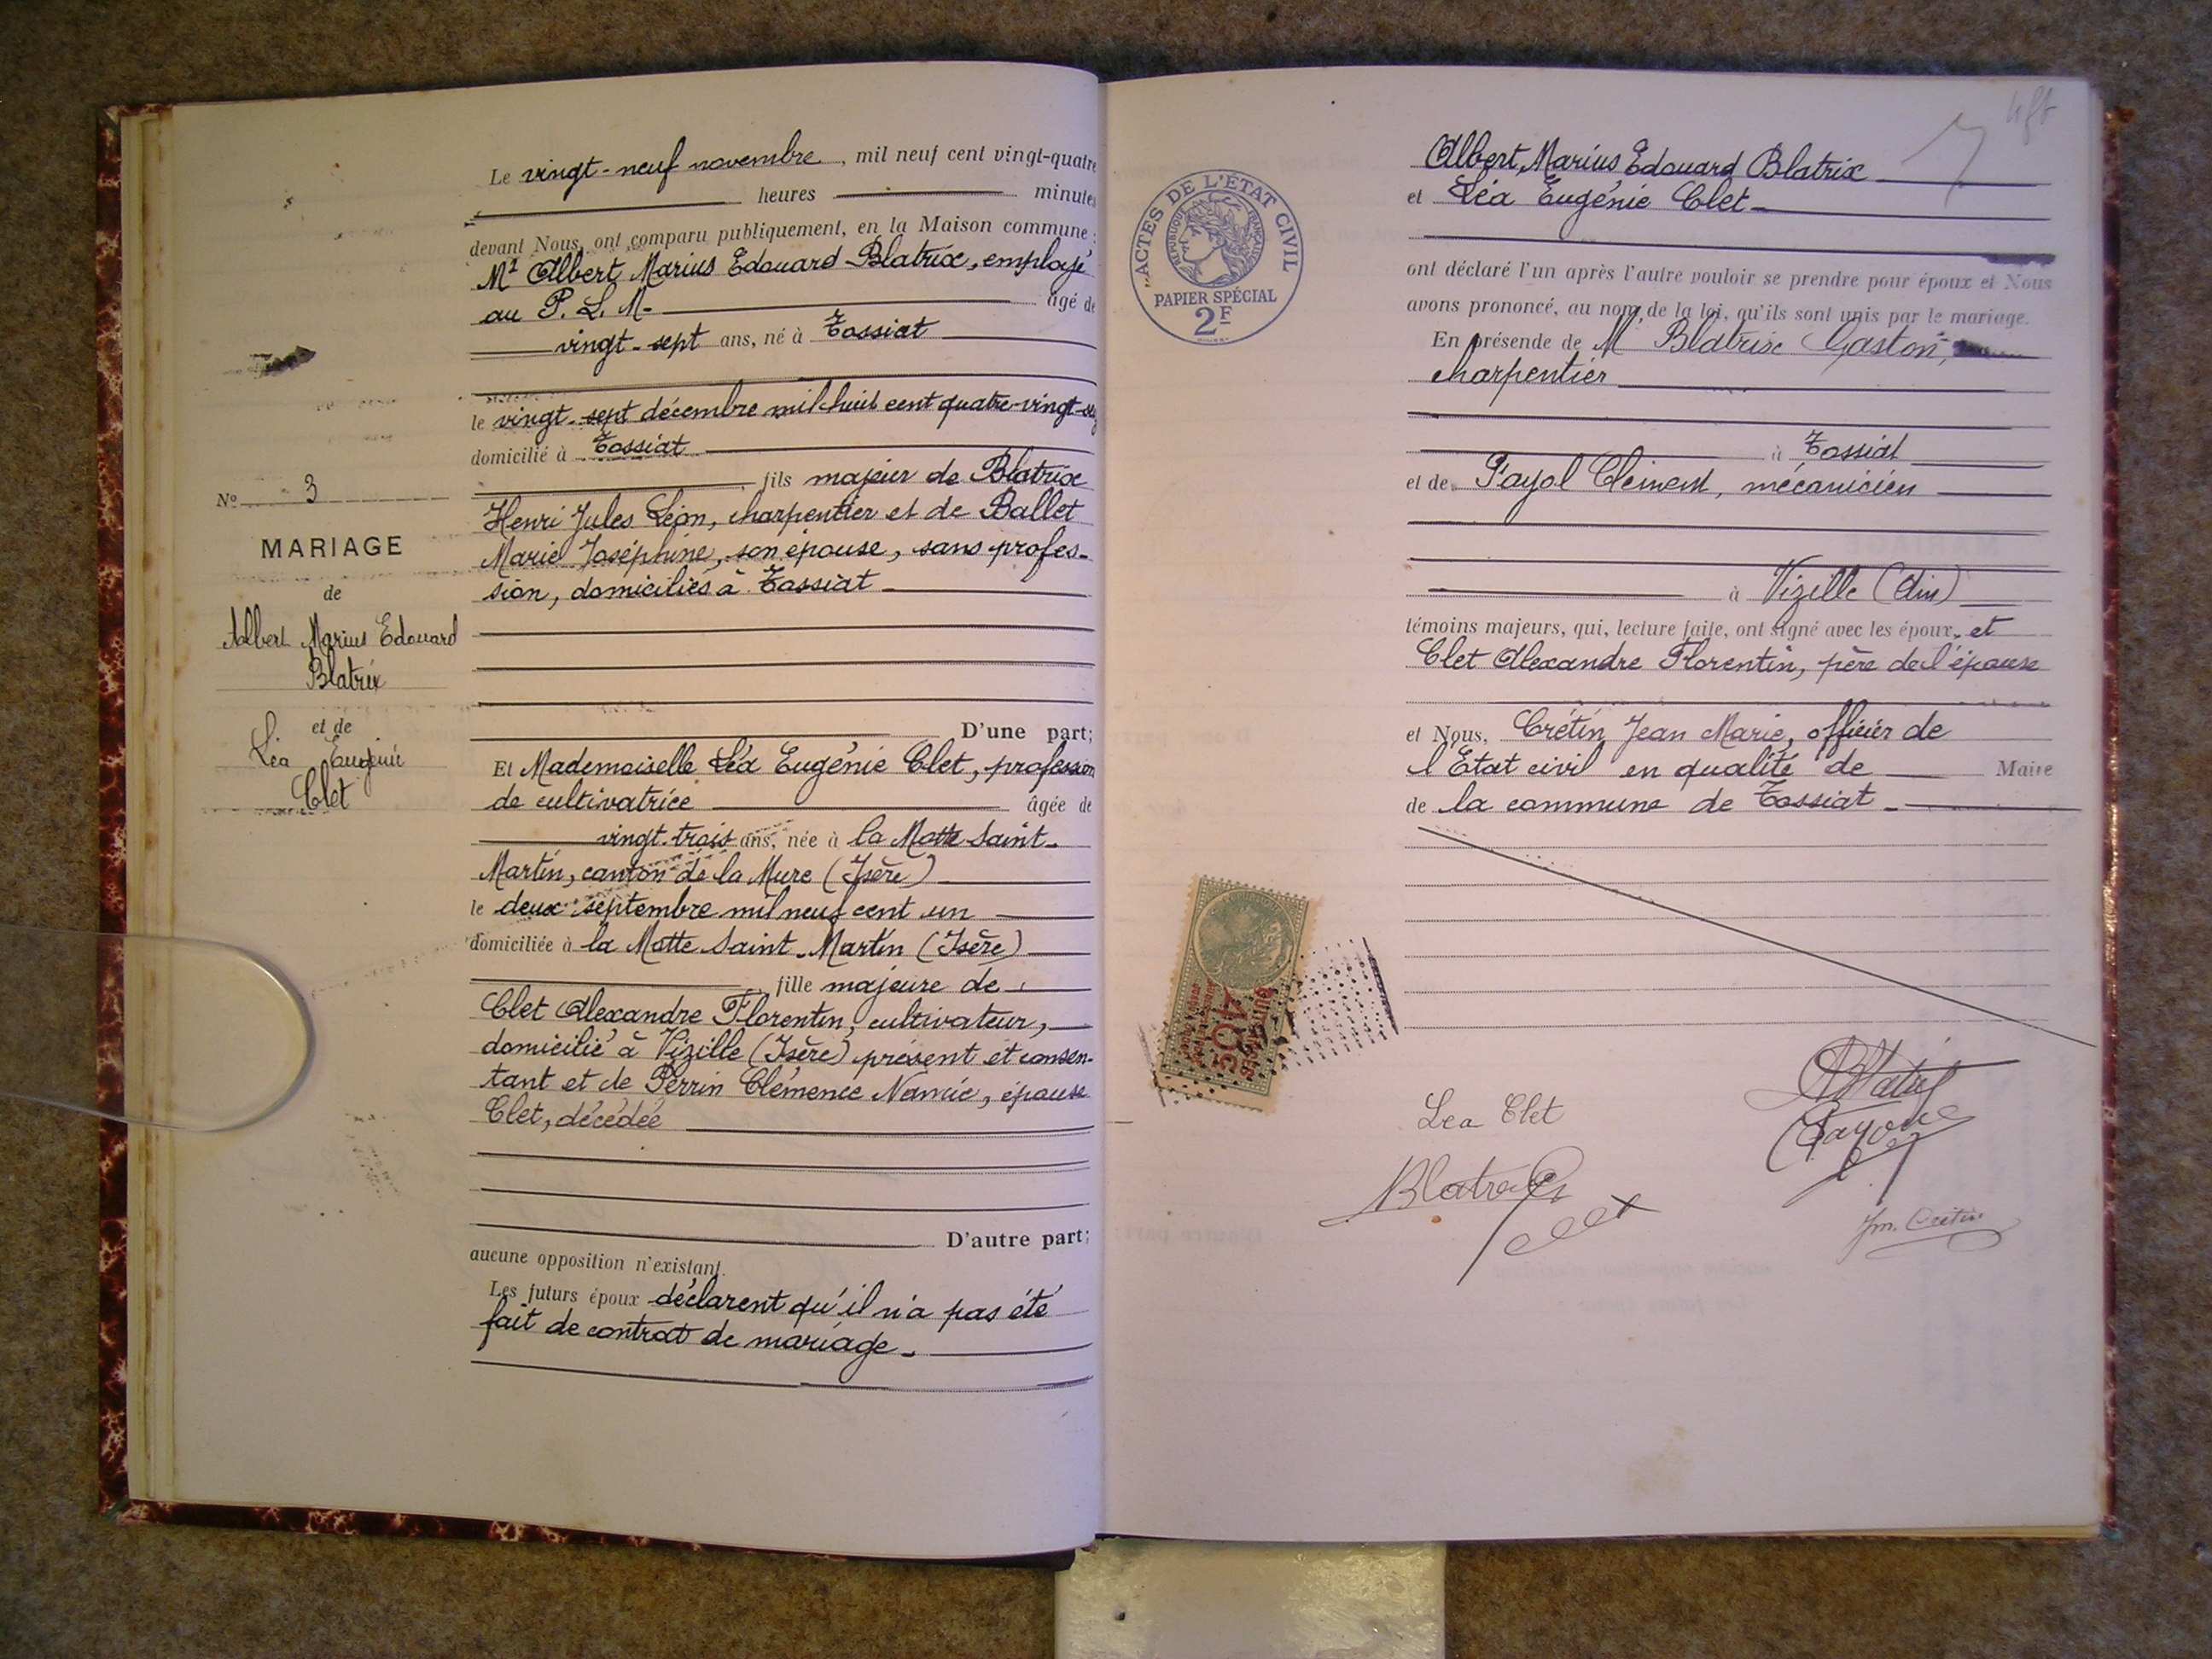 Le vingt-neuf novembre, mil neuf cent vingt-quatre
heures minutes
devant Nous, ont comparu publiquement, en la Maison commune :
Mr Albert Marius Edouard Blatrix, employé
au P. L. M. âgé de
vingt-sept ans, né à Tossiat
le vingt-sept décembre mil huit cent quatre-vingt-
domicilié à Tossiat
, fils majeur de Blatrix
Henri Jules Léon, charpentier et de Ballet
Marie Joséphine, son épouse, sans profes-
sion, domiciliés à Tossiat
D'une part;
Et Mademoiselle Léa Eugénie Clet, profession
de cultivatrice âgée de
vingt-trois ans, née à la Motte Saint-
Martin, canton de la Mure (Isère)
le deux septembre mil neuf cent un
domiciliée à la Motte Saint-Martin (Isère)
, fille majeure de
Clet Alexandre Florentin, cultivateur,
domicilié à Vizille (Isère) présent et consen-
tant et de Perrin Clémence Namie, épouse
Clet, décédée
D'autre part;
aucune opposition n'existant.
Les futurs époux déclarent qu'il n'a pas été
fait de contrat de mariage.
No 3
MARIAGE
de
Albert Marius Edouard
Blatrix
et de
Léa Eugénie
Clet
"ACTES DE L'ETAT CIVIL
REPUBLIQUE FRANÇAISE
PAPIER SPÉCIAL
2F
Albert Marius Edouard Blatrix
et Léa Eugénie Clet
ont déclaré l'un après l'autre vouloir se prendre pour époux et Nous
avons prononcé, au nom de la loi, qu'ils sont unis par le mariage.
En présende de Mr Blatrix Gaston,
charpentier
à Tossiat
et de Payol Clément, mécanicien
à Vizille (Ain)
témoins majeurs, qui, lecture faite, ont signé avec les époux, et
Clet Alexandre Florentin, père de l'épouse
et Nous, Crétin Jean Marie, officier de
l'Etat civil en qualité de Maire
de la commune de Tossiat
40c
Lea Clet
Blatrix
Clet
Jm. Cretin